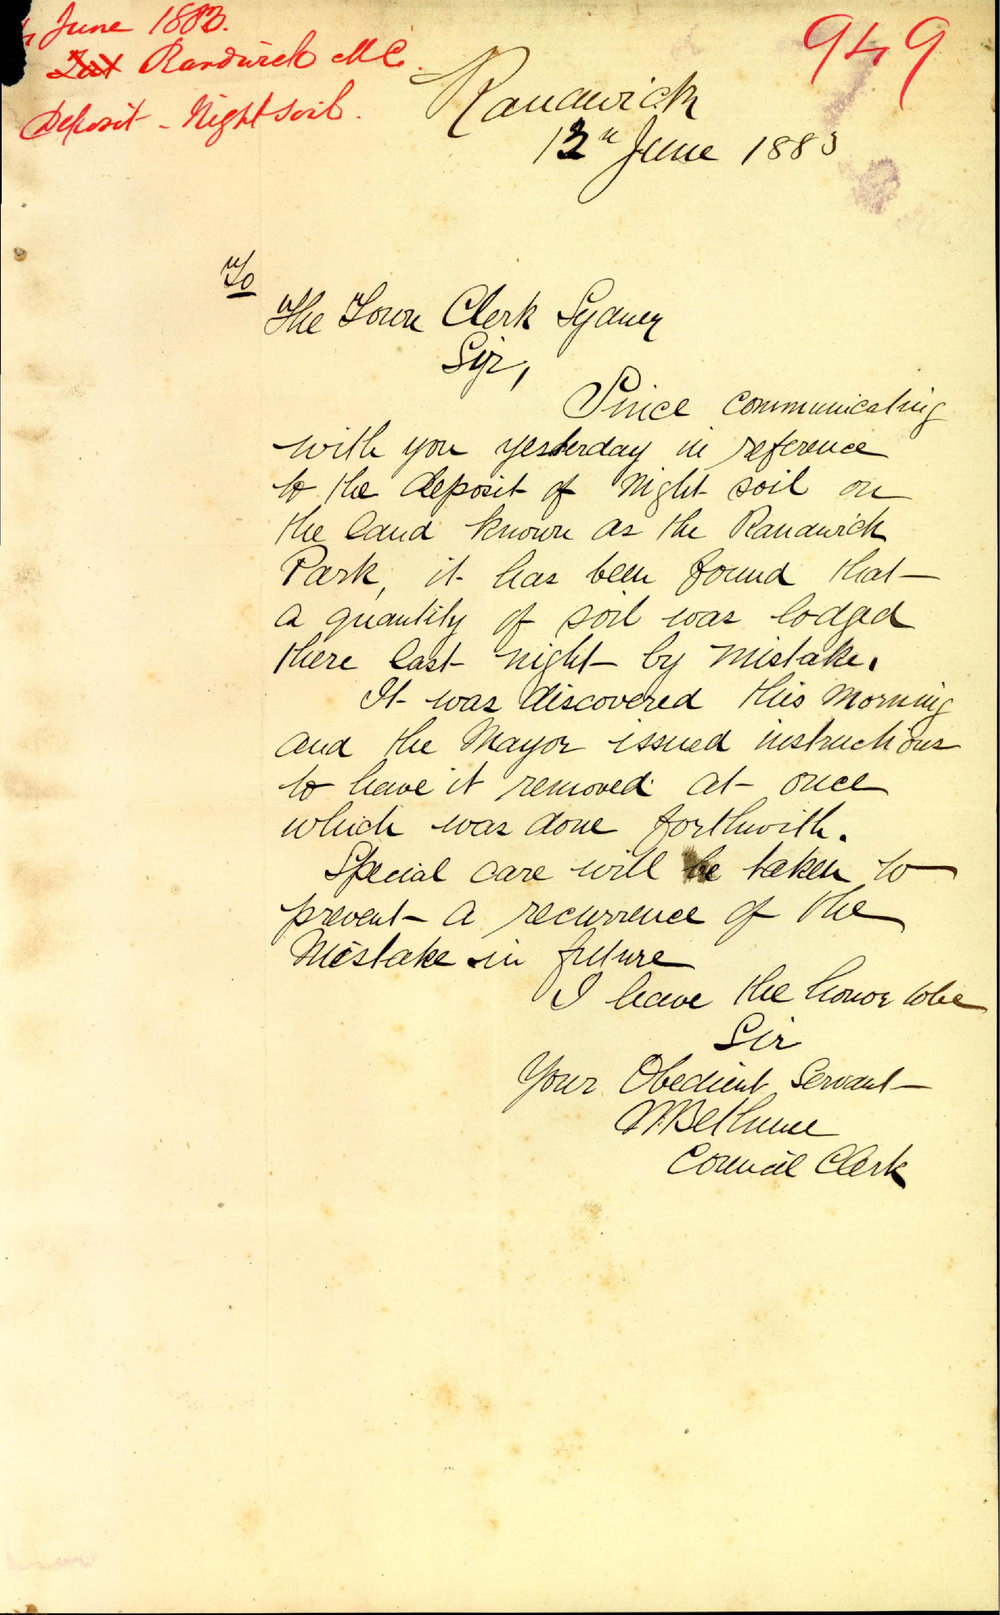 June 1883.
Randwick M C.
Deposit - Nightsoil.
949
Randwick
June 1883
To
The Town Clerk Sydney
Sir,
Since communicating
with you yesterday in reference
to the deposit of Night soil on
the land known as the Randwick
Park, it has been found that
a quantity of soil was lodged
there last night by mistake.
It was discovered this morning
and the Mayor issued instructions
to have it removed at once
which was done forthwith.
Special care will be taken to
prevent a recurrence of the
Mistake in future
I have the honor to be
Sir
Your Obedient Servant
Bethune
Council Clerk